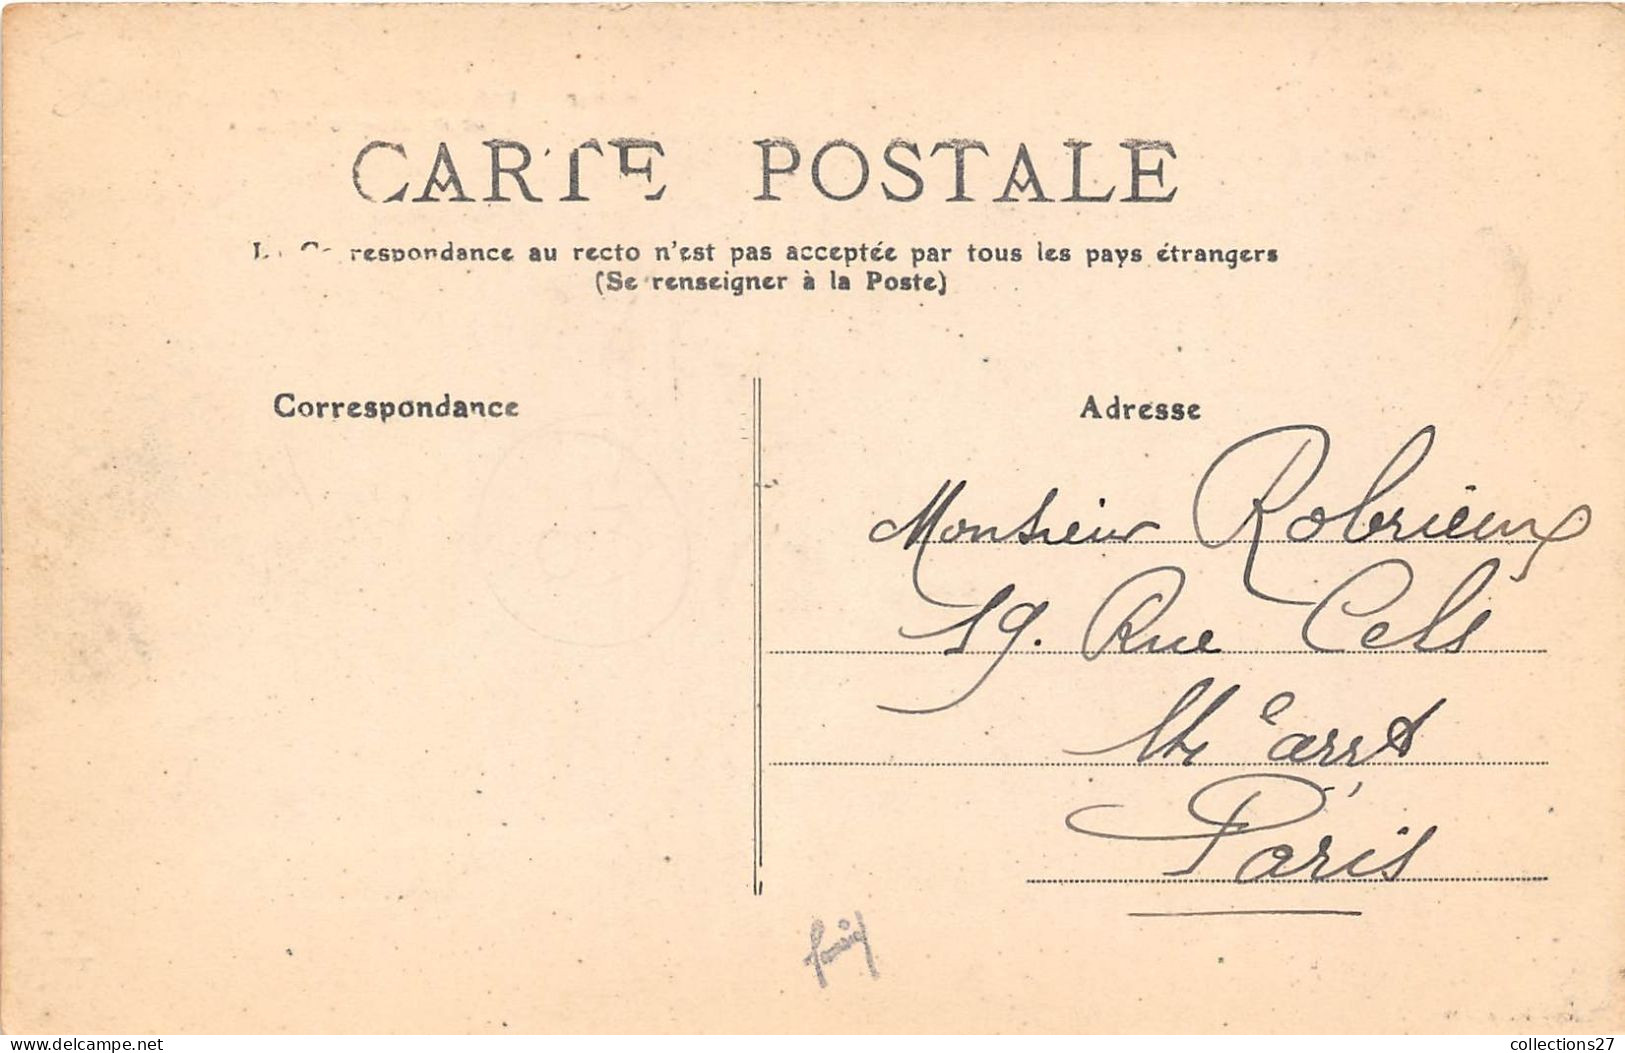 CARTE POSTALE
La Correspondance au recto n'est pas acceptée par tous les pays étrangers
(Se renseigner à la Poste)
Correspondance
Adresse
Monsieur Robrieux
19. Rue Cels
14e arrt
Paris
collections27